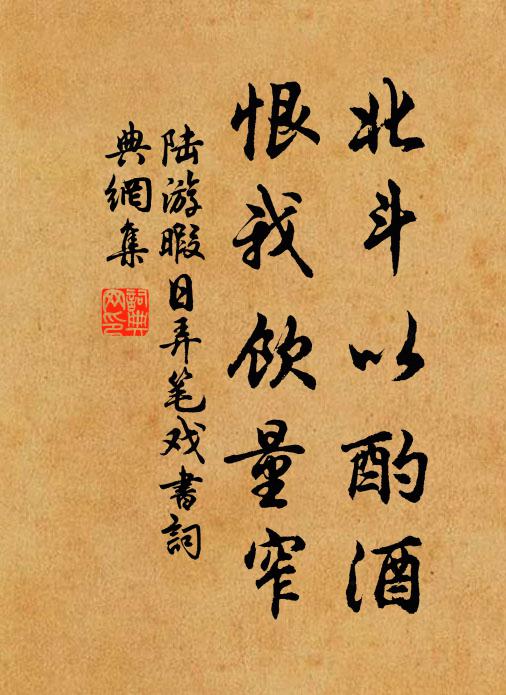 北斗以酌酒
恨我飲量窄
陆游暇日弄笔戏書詞
典網集
詞典
网印